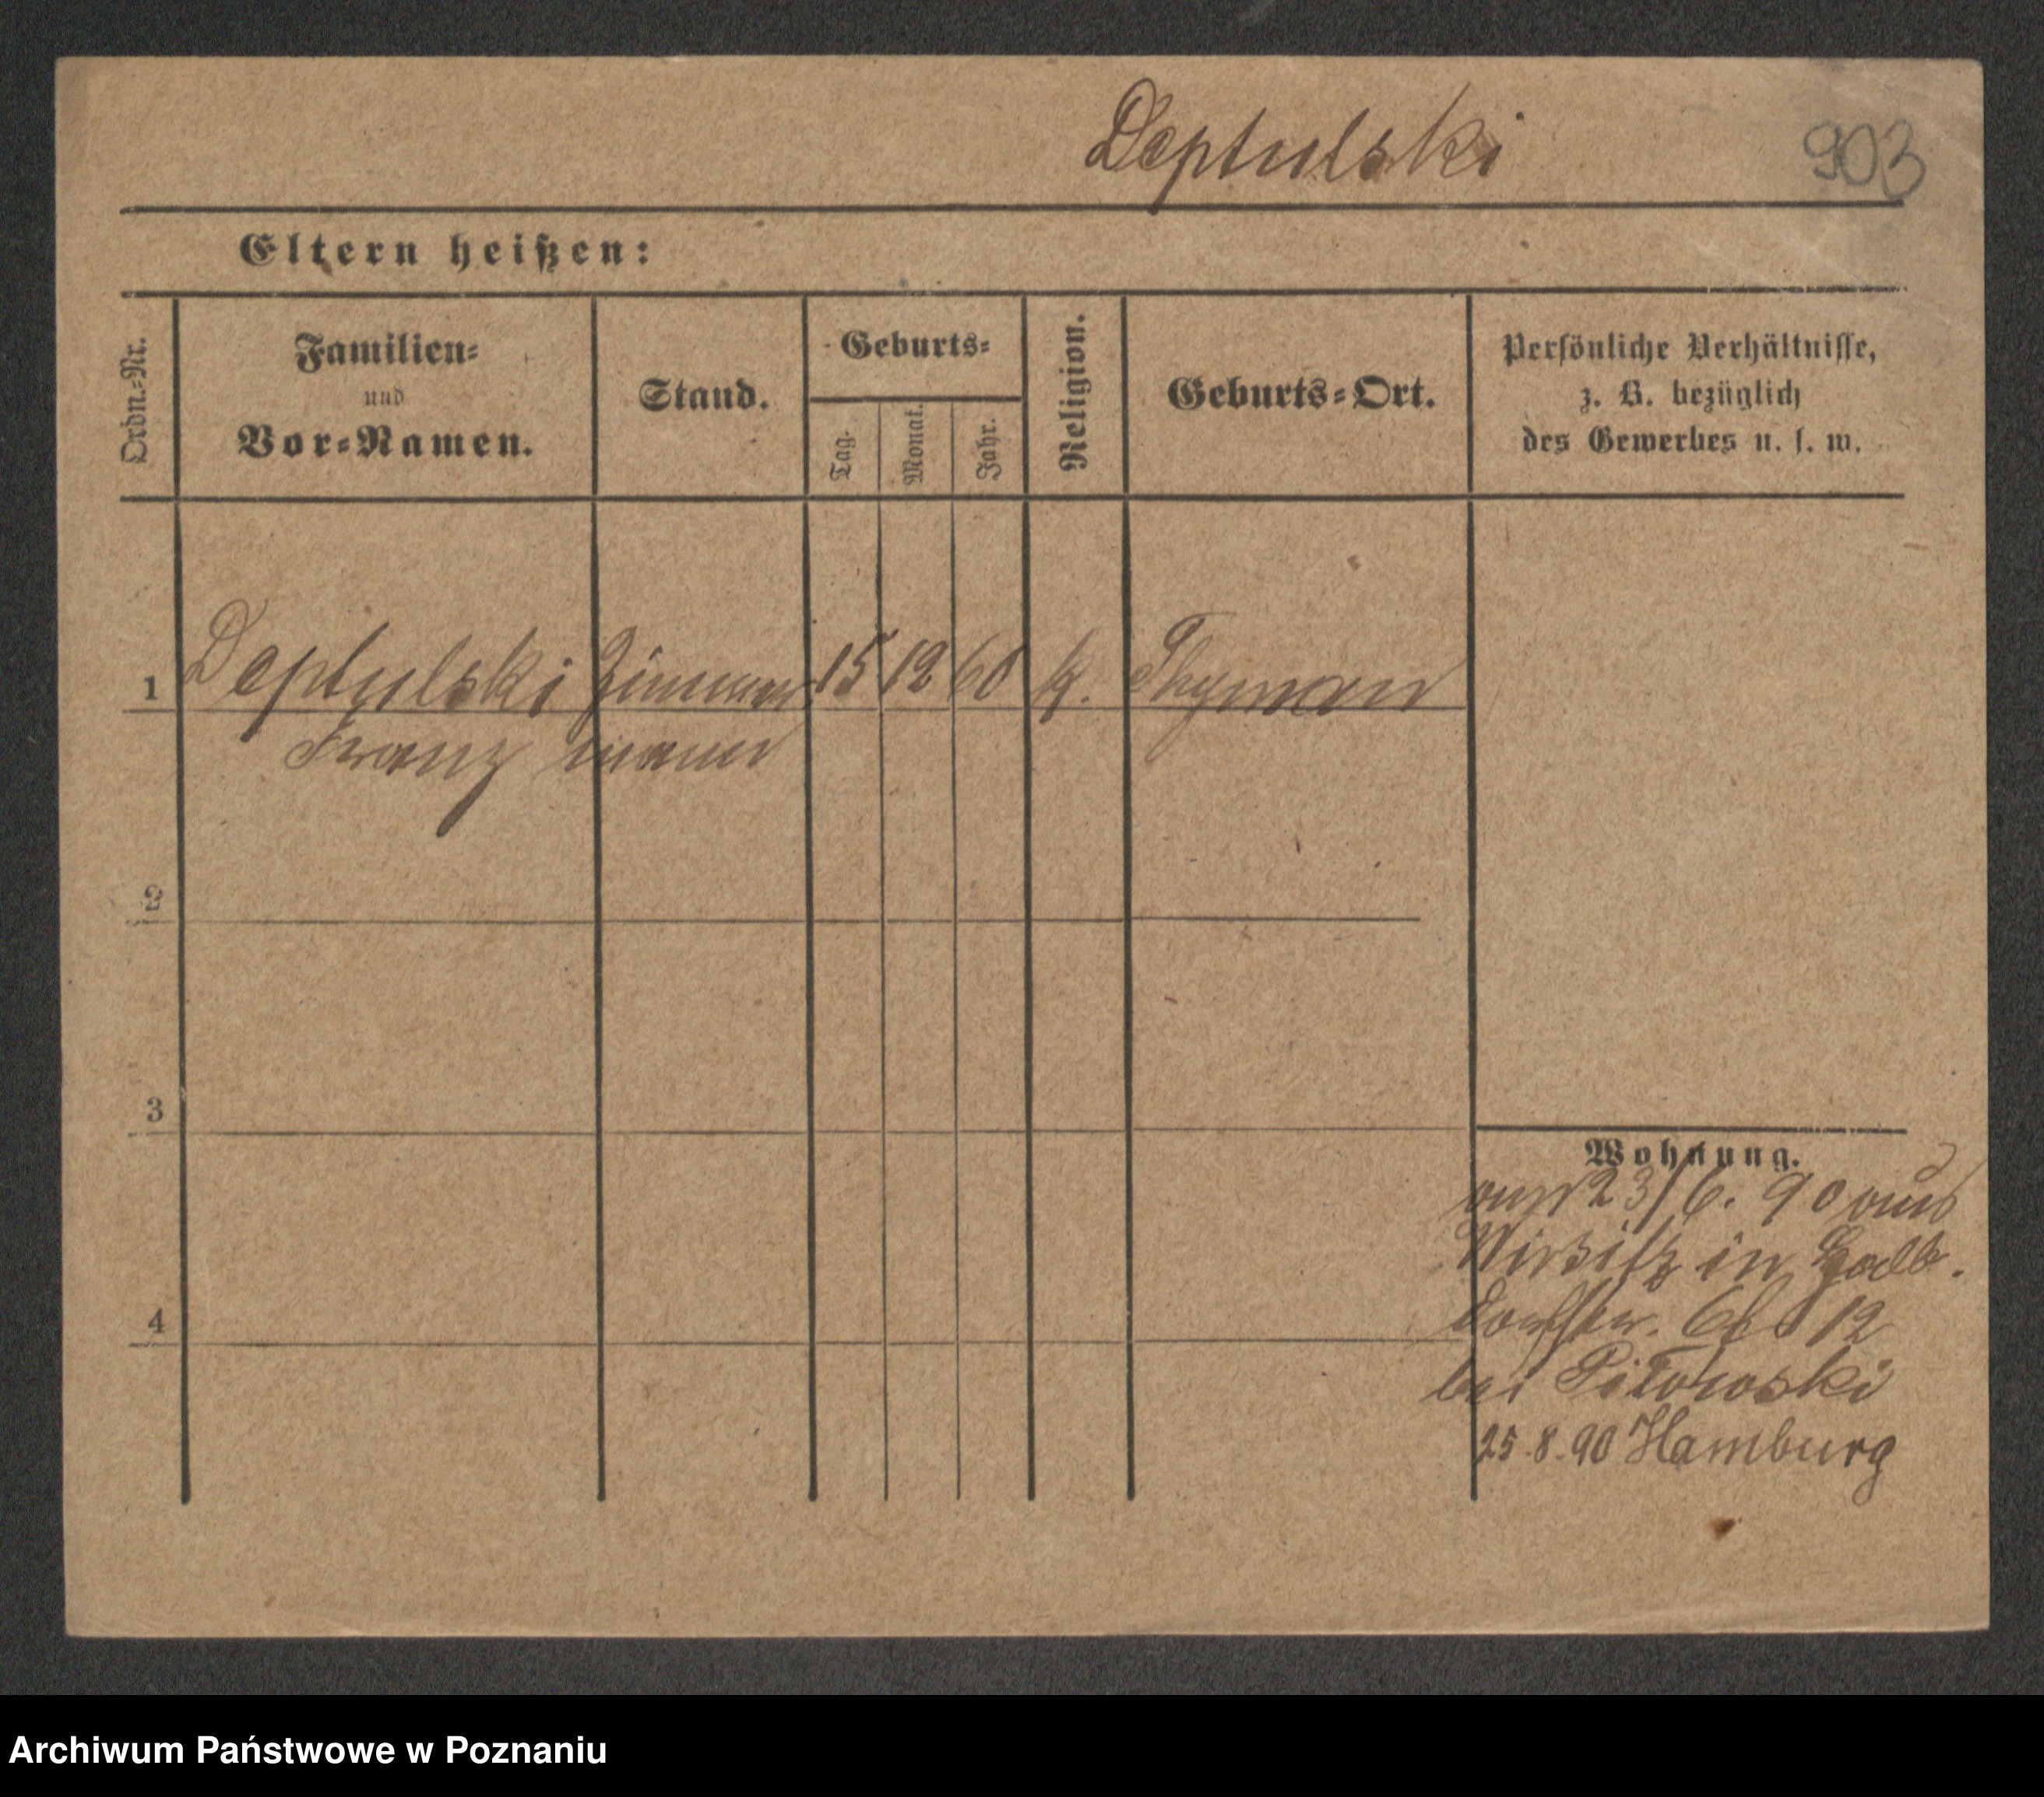 Deptulski 903
Eltern heißen:
Ordn.-Nr. Familien- und Vor-Namen. Stand. Geburts- Tag. Monat. Jahr. Religion. Geburts-Ort. Persönliche Verhältnisse, z. B. bezüglich des Gewerbes u. s. w.
1 Deptulski Zimmer 15 12 60 k. Thymau
Franz mann
2
3
4
Wohnung.
23/6. 90 aus
Wirsitz in Halb
dorfstr. 12
bei Pilowski
25.8.90 Hamburg
Archiwum Państwowe w Poznaniu